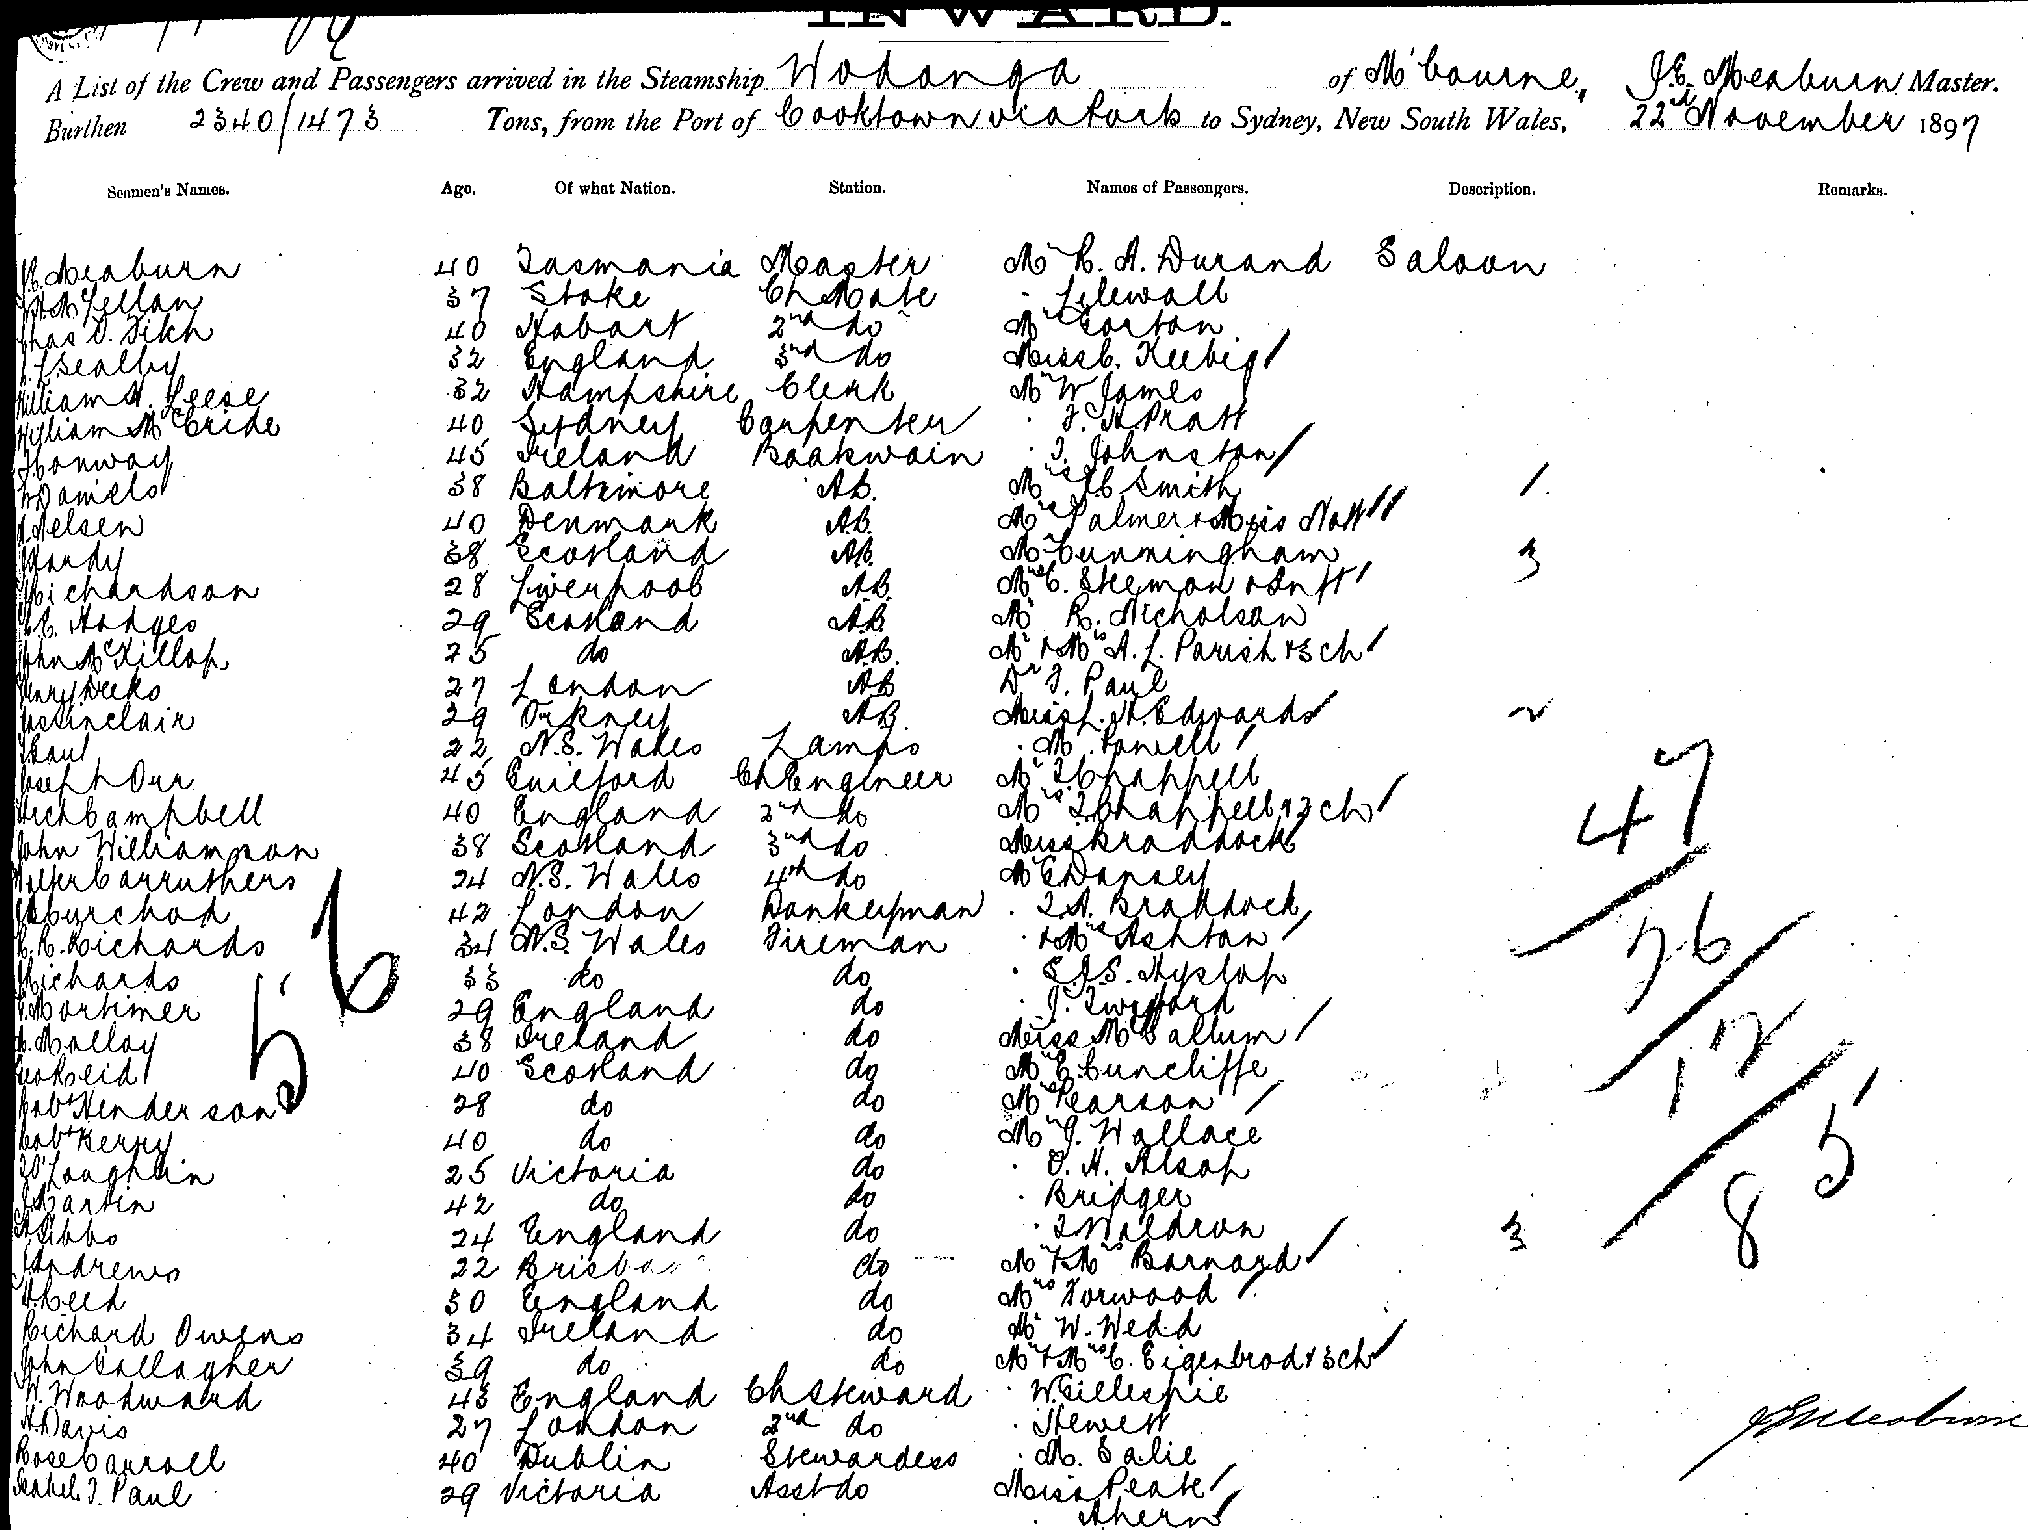 INWARD.
A List of the Crew and Passengers arrived in the Steamship Wodonga of M'bourne, J.E. Meaburn Master.
Burthen 2340/1473 Tons, from the Port of Cooktown via Ports to Sydney, New South Wales, 22nd November 1897
Seamen's Names. Age. Of what Nation. Station. Names of Passengers. Description. Remarks.
Meaburn 40 Tasmania Master Mr R. A. Durand Saloon
McLellan 37 Stoke Ch Mate
Chas D. 40 Hobart 2nd do Mr Gorton
32 England 3rd do Miss C.
William A. Leese 32 Hampshire Clerk Mr W James
William McCride 40 Sydney Carpenter F. A Pratt
Conway 45 Ireland Boatswain T. Johnston
Daniels 38 Baltimore A.B. Mrs Smith 1
Nelsen 40 Denmark A.B. Mrs Palmer & Miss Nott
Hardy 38 Scotland A.B. Mr Cunningham 3
Richardson 28 Liverpool A.B. Mrs C. Steeman & Inft
Hodges 29 Scotland A.B. Mr R. Nicholson
John McKillop 25 do A.B. Mr & Mrs A. L. Parish & 3 ch
Henry Weeks 27 London A.B. Dr F. Paul
Sinclair 29 Orkney A.B. Miss L. A. Edwards 2
Paul 22 N.S. Wales Lamps M. Powell
Joseph Orr 45 Guilford Ch Engineer Mr T Chappell
Arch Campbell 40 England 2nd do Mrs T Chappell & 3 ch
John Williamson 38 Scotland 3rd do Miss Braddock
Walter Carruthers 24 N.S. Wales 4th do Mr E
42 London Donkeyman T. A. Braddock
R. Richards 34 N.S. Wales Fireman & Mrs Ashton
Richards 33 do do S. Hyslop
Mortimer 29 England do J. Twyford
Molloy 38 Ireland do Miss McCallum
Geo Reid 40 Scotland do Mr E Cuncliffe
Robt Henderson 28 do do Mrs Pearson
Robt Kerry 40 do do Mr J. Wallace
O'Loughlin 25 Victoria do O. H. Alsop
Martin 42 do do Bridger
Gibbs 24 England do T Waldron 3
Andrews 22 Brisbane do Mr & Mrs Barnard
Reed 30 England do Mrs Horwood
Richard Owens 34 Ireland do Mr W. Wedd
John Gallagher 39 do do Mr & Mrs C. Eigenbrod & 3 ch
W. Woodward 43 England Ch Steward W. Gillespie
A Davis 27 London 2nd do Stewett
Rose Carroll 40 Dublin Stewardess M. Salie
Isabel J. Paul 29 Victoria Asst do Miss Peate
Ahern
56
47
26
12
85